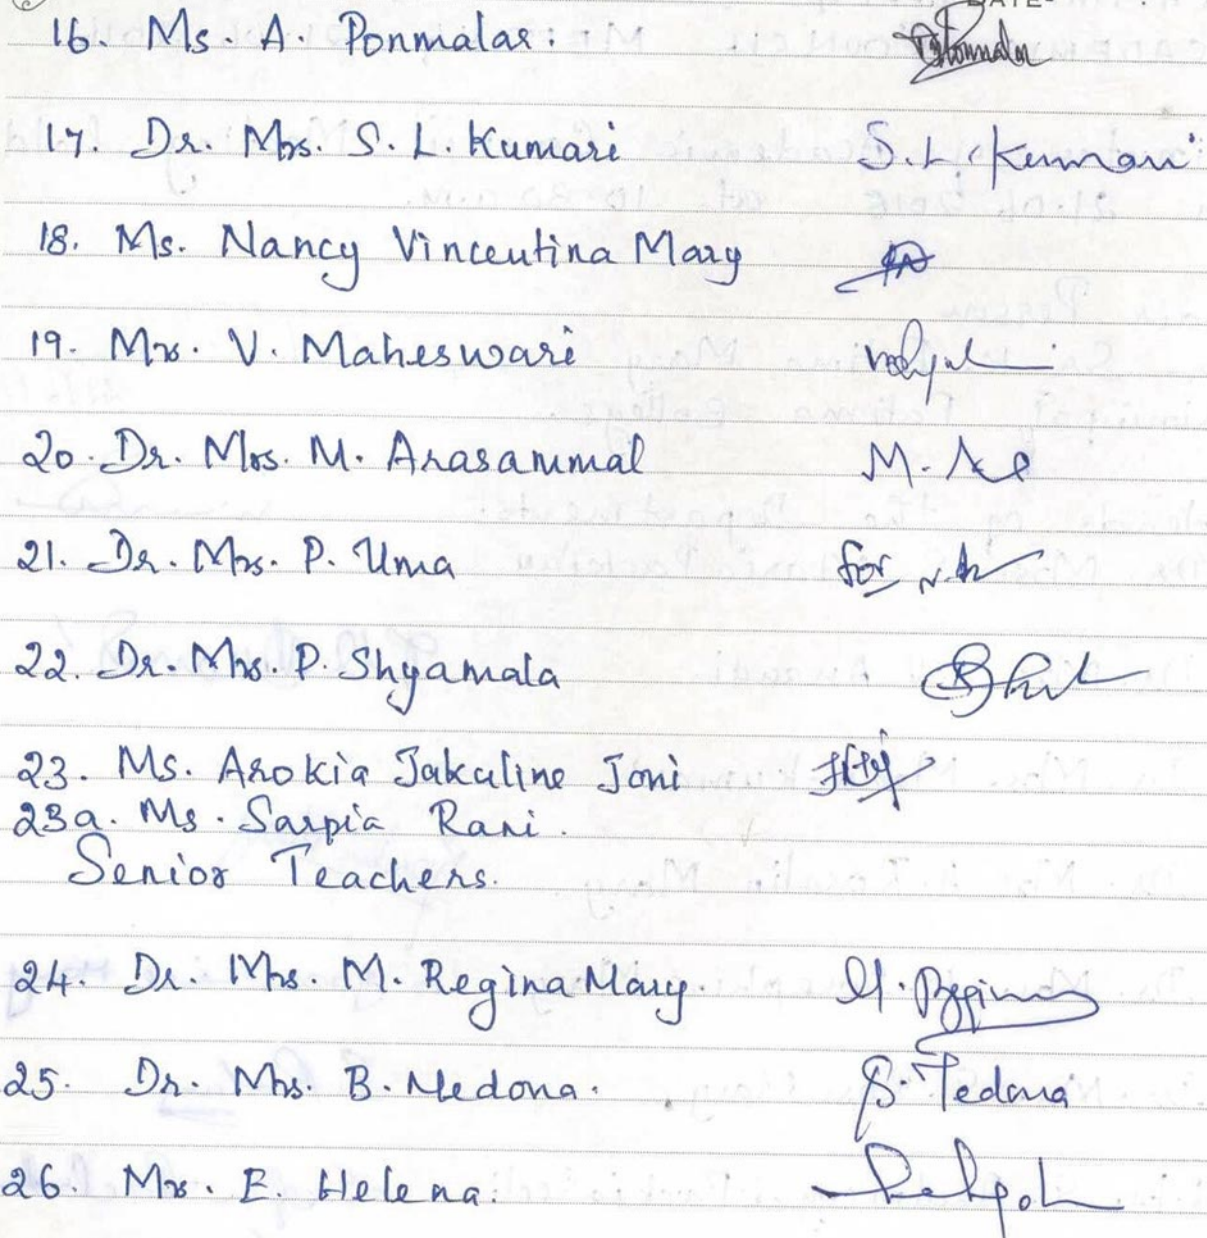 DATE-
16. Ms A. Ponmalar.
17. Dr. Mrs. S. L. Kumari S. L. Kumari
18. Ms. Nancy Vincentina Mary
19. Mrs. V. Maheswari
20. Dr. Mrs. M. Arasammal M.
21. Dr. Mrs. P. Uma for
22. Dr. Mrs. P. Shyamala
23. Ms. Arokia Jakaline Joni
23a. Ms. Sarpia Rani.
Senior Teachers.
24. Dr. Mrs. M. Regina Mary. M. Regina
25. Dr. Mrs. B. Medona.
26. Mrs. E. Helena.